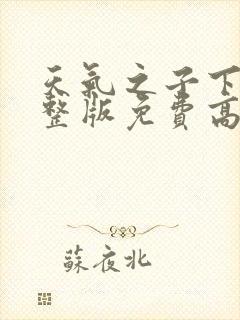 天氣之子下
整版免費高
蘇夜北